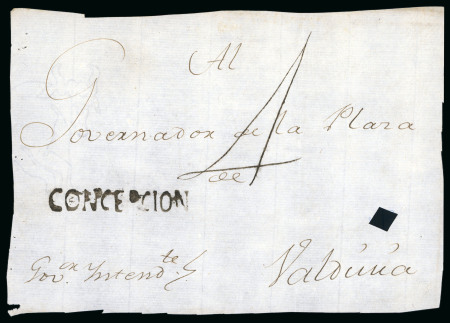 Al
Governador de la Plaza
4
de
CONCEPCION
Valdivia
Gov.or Intend.te